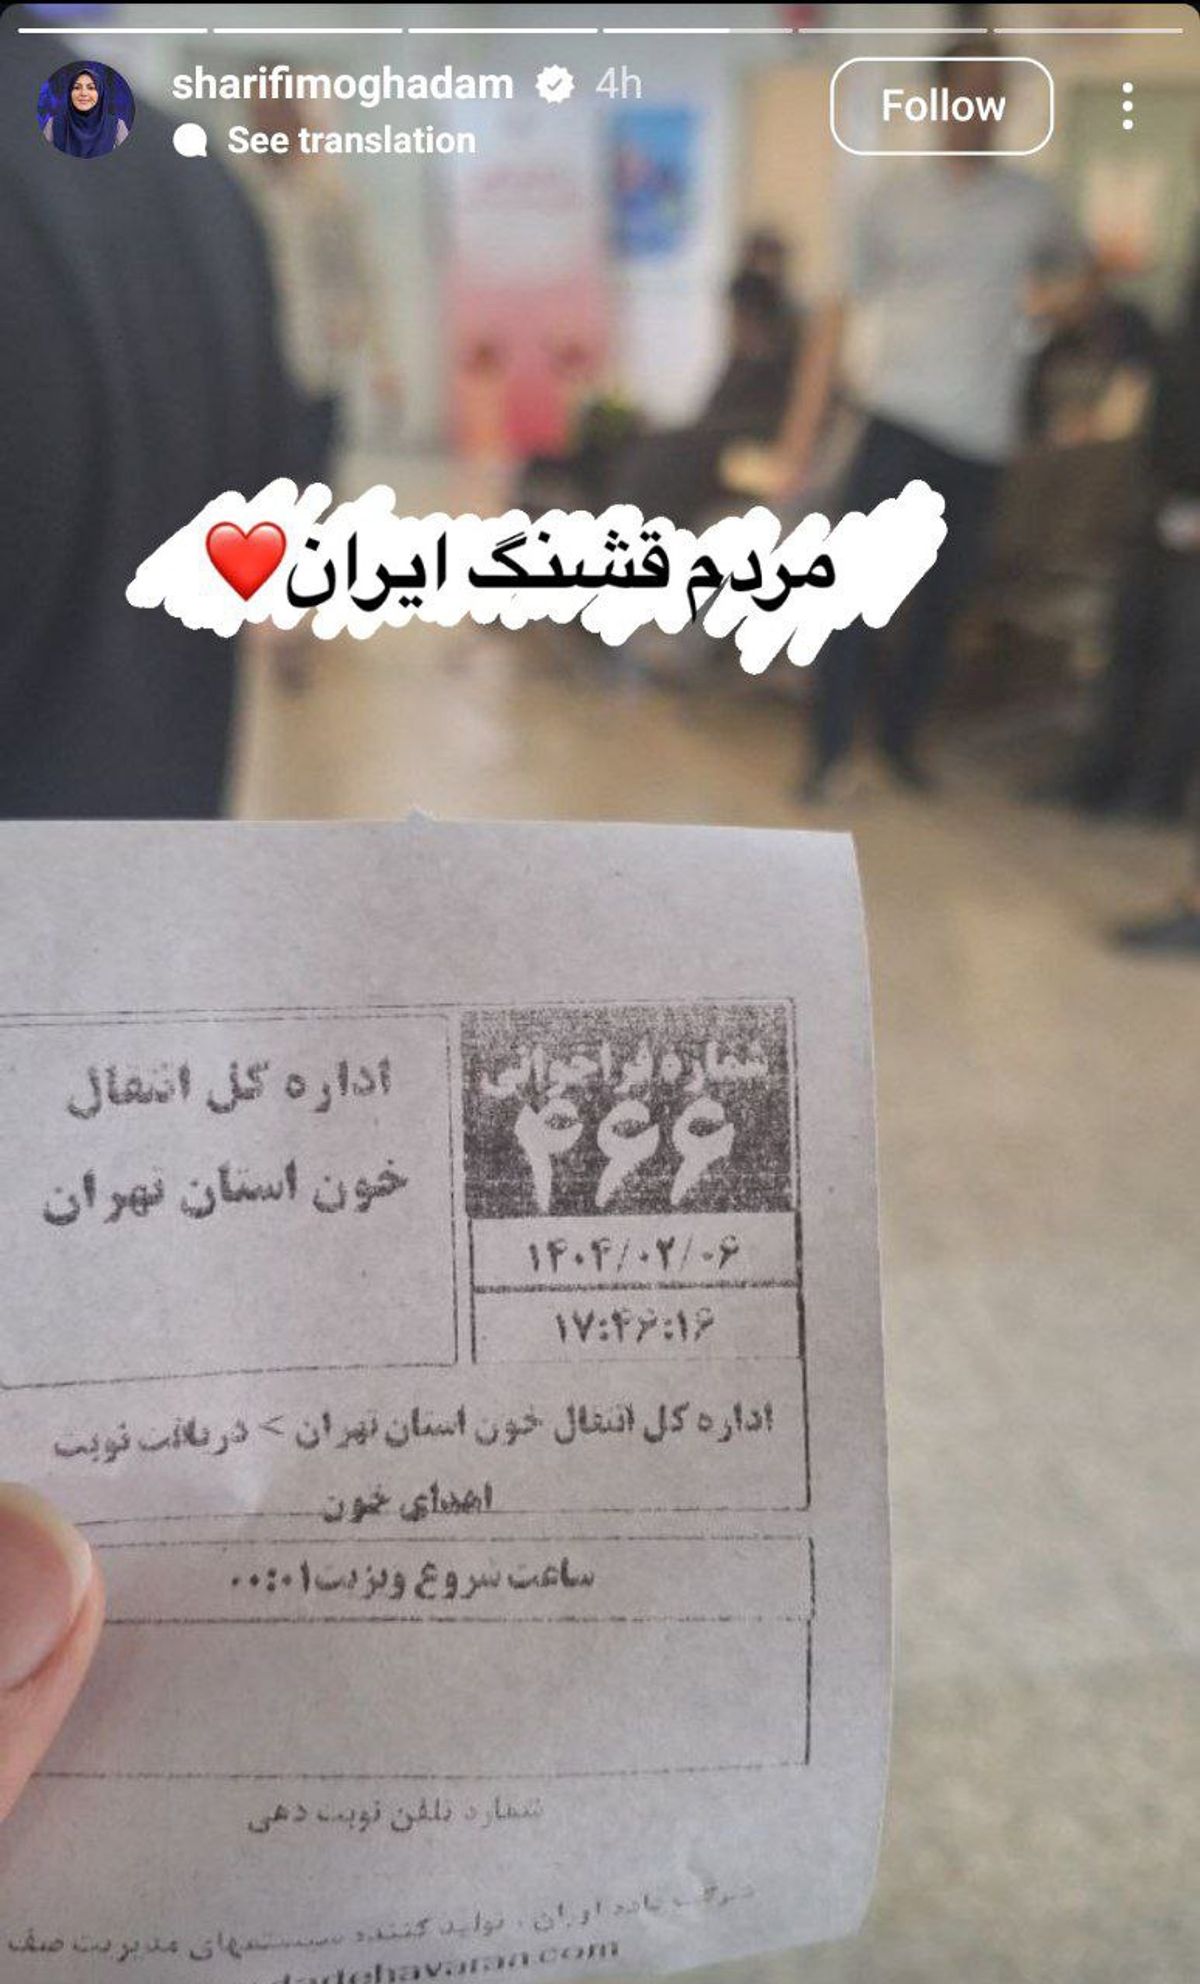 sharifimoghadam 4h
Follow
See translation
مردم قشنگ ایران❤️
شماره فراخوانی
۴۶۶
اداره کل انتقال
خون استان تهران
۱۴۰۴/۰۲/۰۶
۱۷:۴۶:۱۶
اداره کل انتقال خون استان تهران > دریافت نوبت
اهدای خون
ساعت شروع ویزیت۰۰:۰۱
شماره تلفن نوبت دهی
داده اوران ، تولید کننده سیستمهای مدیریت صف
dadehavaran.com